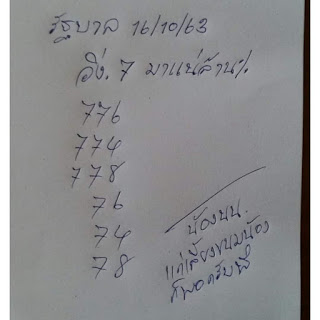 รัฐบาล 16/10/63
วิ่ง. 7 มาแน่ล้าน%
776
774
778
76
74
78
น้องนน.
แค่เลี้ยงขนมน้อง
ก็พอครับพี่